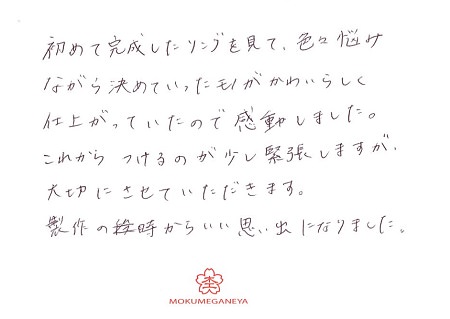 初めて完成したリングを見て、色々悩み
ながら決めていったモノがかわいらしく
仕上がっていたので感動しました。
これから つけるのが少し緊張しますが、
大切にさせていただきます。
製作の時からいい思い出になりました。
MOKUMEGANEYA